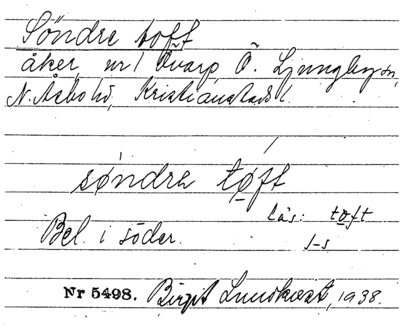 Söndre toft
åker, nr 1 Övarp, Ö. Ljungby sn,
N. Åsbo hd, Kristianstads l.
söndrə toft
Läs: toft
Bel. i söder. 1-s
Nr 5498. Birgit Lundkvist, 1938.